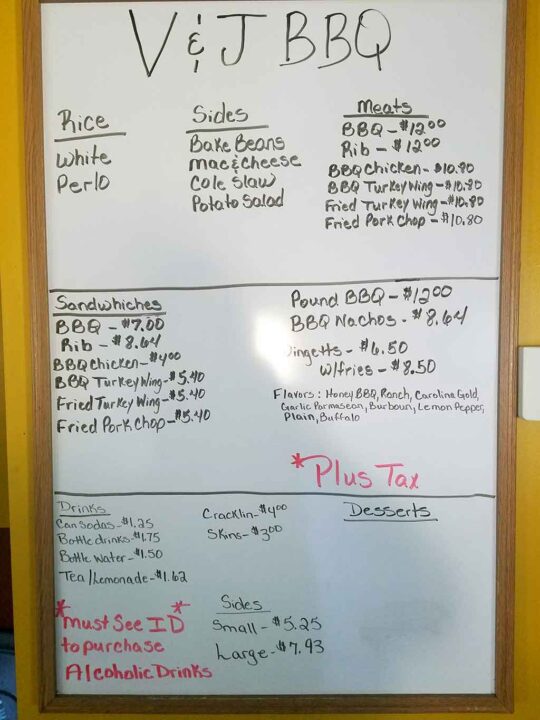 V & J BBQ
Rice
White
Perlo
Sides
Bake Beans
Mac & Cheese
Cole Slaw
Potato Salad
Meats
BBQ - $12.00
Rib - $12.00
BBQ Chicken - $10.80
BBQ Turkey Wing - $10.80
Fried Turkey Wing - $10.80
Fried Pork Chop - $10.80
Sandwhiches
BBQ - $7.00
Rib - $8.64
BBQ Chicken - $4.00
BBQ Turkey Wing - $5.40
Fried Turkey Wing - $5.40
Fried Pork Chop - $5.40
Pound BBQ - $12.00
BBQ Nachos - $8.64
ingetts - $6.50
W/fries - $8.50
Flavors: Honey BBQ, Ranch, Carolina Gold,
Garlic Parmasean, Burboun, Lemon Pepper,
Plain, Buffalo
*Plus Tax
Drinks
Can Sodas - $1.25
Bottle drinks - $1.75
Bottle Water - $1.50
Tea/Lemonade - $1.62
Cracklin - $4.00
Skins - $3.00
Desserts
*Must See ID*
to purchase
Alcoholic Drinks
Sides
Small - $5.25
Large - $7.93